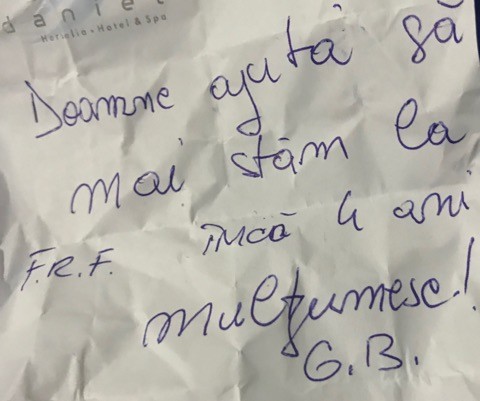 danie
Hotel & Spa
Doamne ajută să
mai stăm la
F.R.F. încă 4 ani
mulțumesc!
G.B.